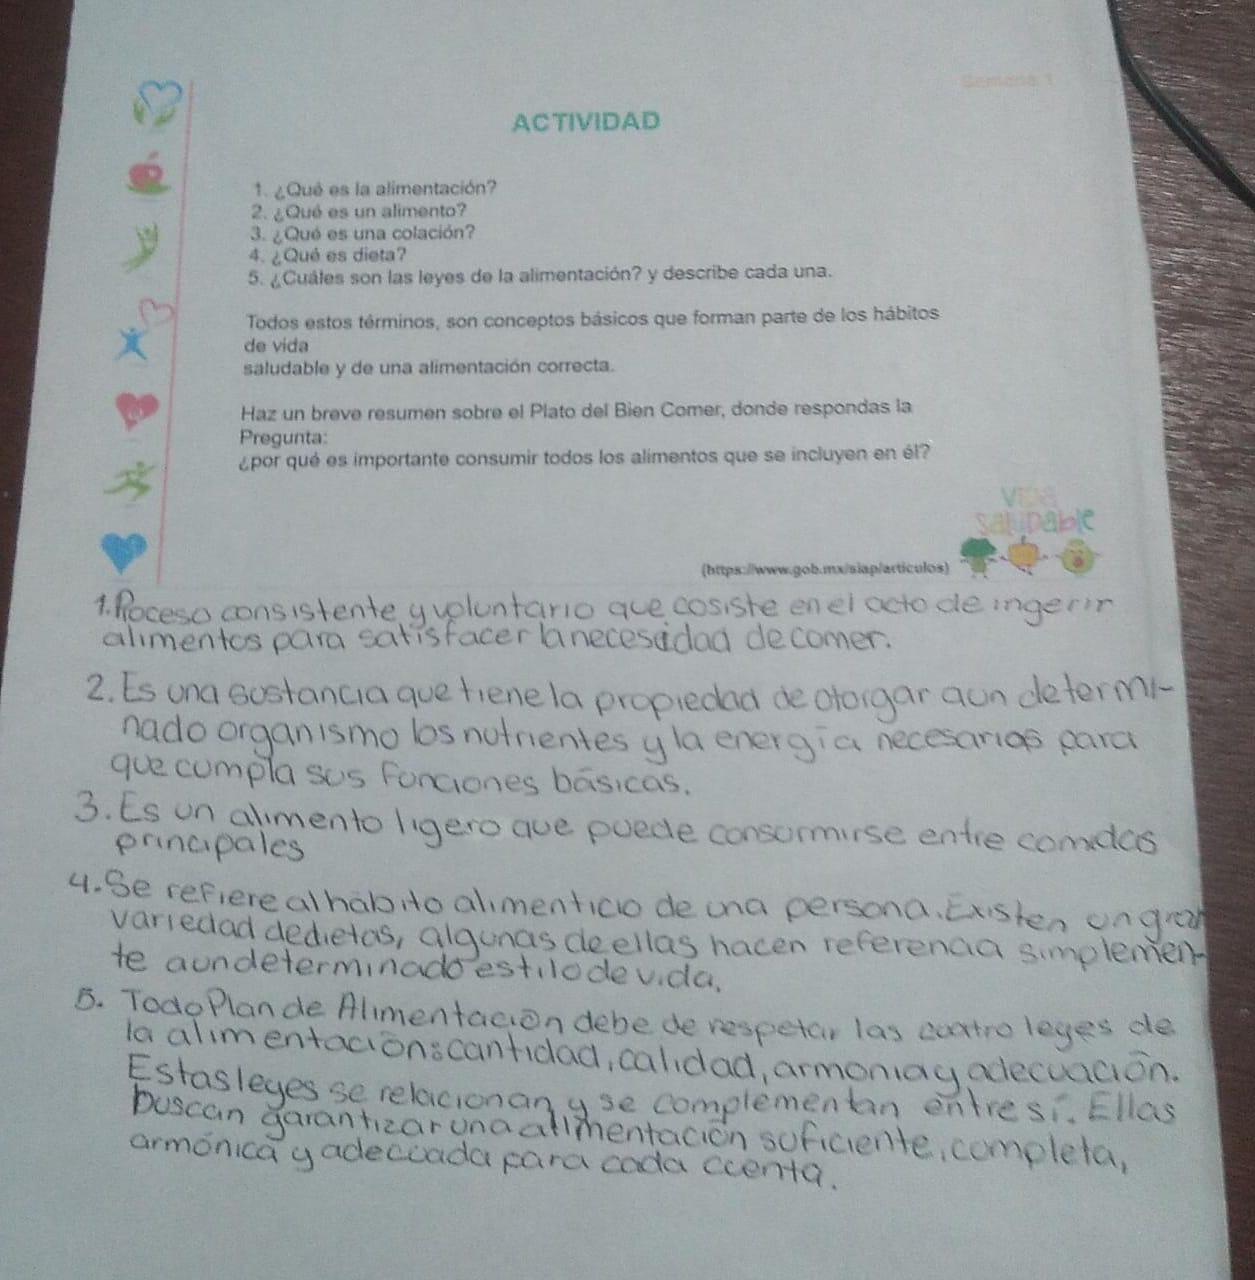 Semana 1
ACTIVIDAD
1. ¿Qué es la alimentación?
2. ¿Qué es un alimento?
3. ¿Qué es una colación?
4. ¿Qué es dieta?
5. ¿Cuáles son las leyes de la alimentación? y describe cada una.
Todos estos términos, son conceptos básicos que forman parte de los hábitos
de vida
saludable y de una alimentación correcta.
Haz un breve resumen sobre el Plato del Bien Comer, donde respondas la
Pregunta:
¿por qué es importante consumir todos los alimentos que se incluyen en él?
VIDA
SALUDABLE
(https://www.gob.mx/siap/articulos)
1. Proceso consistente y voluntario que cosiste en el acto de ingerir
alimentos para satisfacer la necesidad de comer.
2. Es una sustancia que tiene la propiedad de otorgar a un determi-
nado organismo los nutrientes y la energía necesarios para
que cumpla sus funciones básicas.
3. Es un alimento ligero que puede consurmirse entre comidas
principales
4. Se refiere al hábito alimenticio de una persona. Existen un gran
variedad de dietas, algunas de ellas hacen referencia simplemen-
te a un determinado estilo de vida.
5. Todo Plan de Alimentación debe de respetar las cuatro leyes de
la alimentación: cantidad, calidad, armonia y adecuación.
Estas leyes se relacionan y se complementan entre sí. Ellas
buscan garantizar una alimentación suficiente, completa,
armónica y adecuada para cada ccenta.